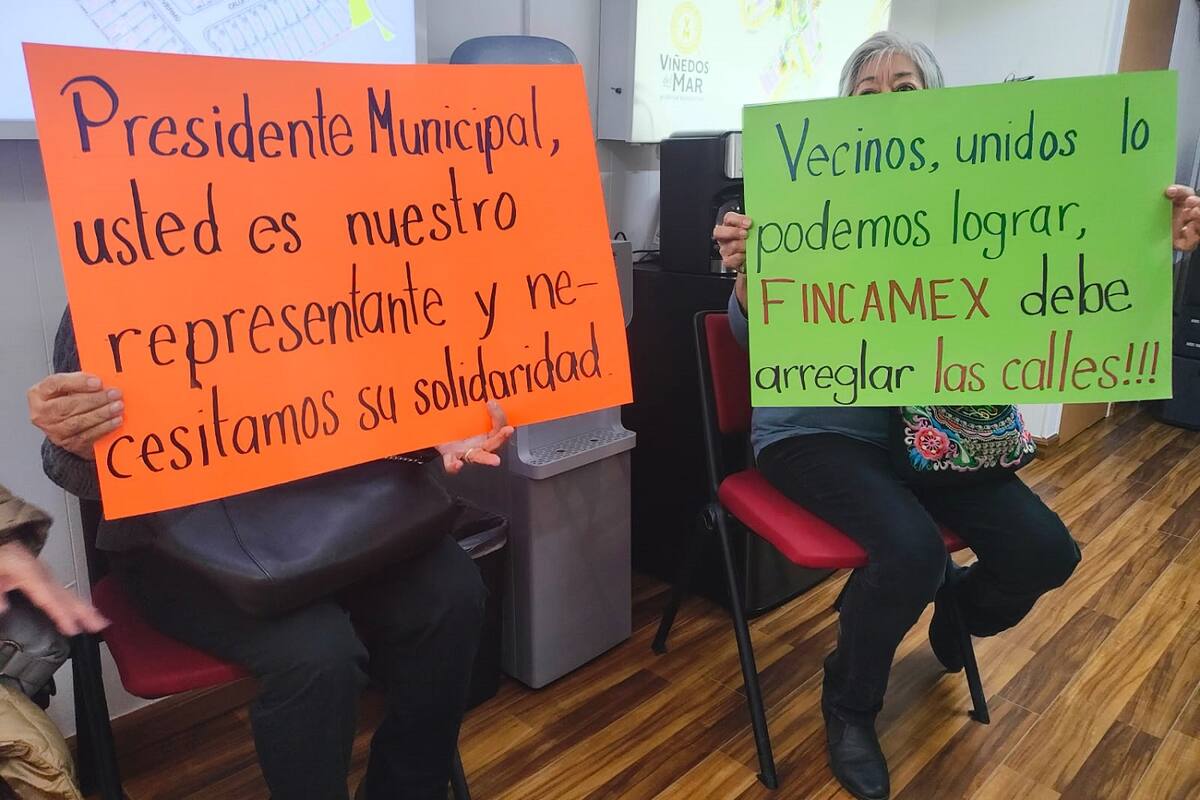 VIÑEDOS
del MAR
Presidente Municipal,
usted es nuestro
representante y ne-
cesitamos su solidaridad.
Vecinos, unidos lo
podemos lograr,
FINCAMEX debe
arreglar las calles!!!